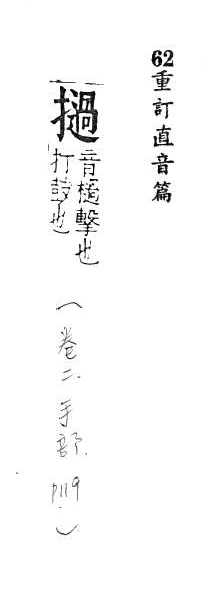 62重訂直音篇
撾
音檛擊也
打鼓也
(卷二.手部.P119.)